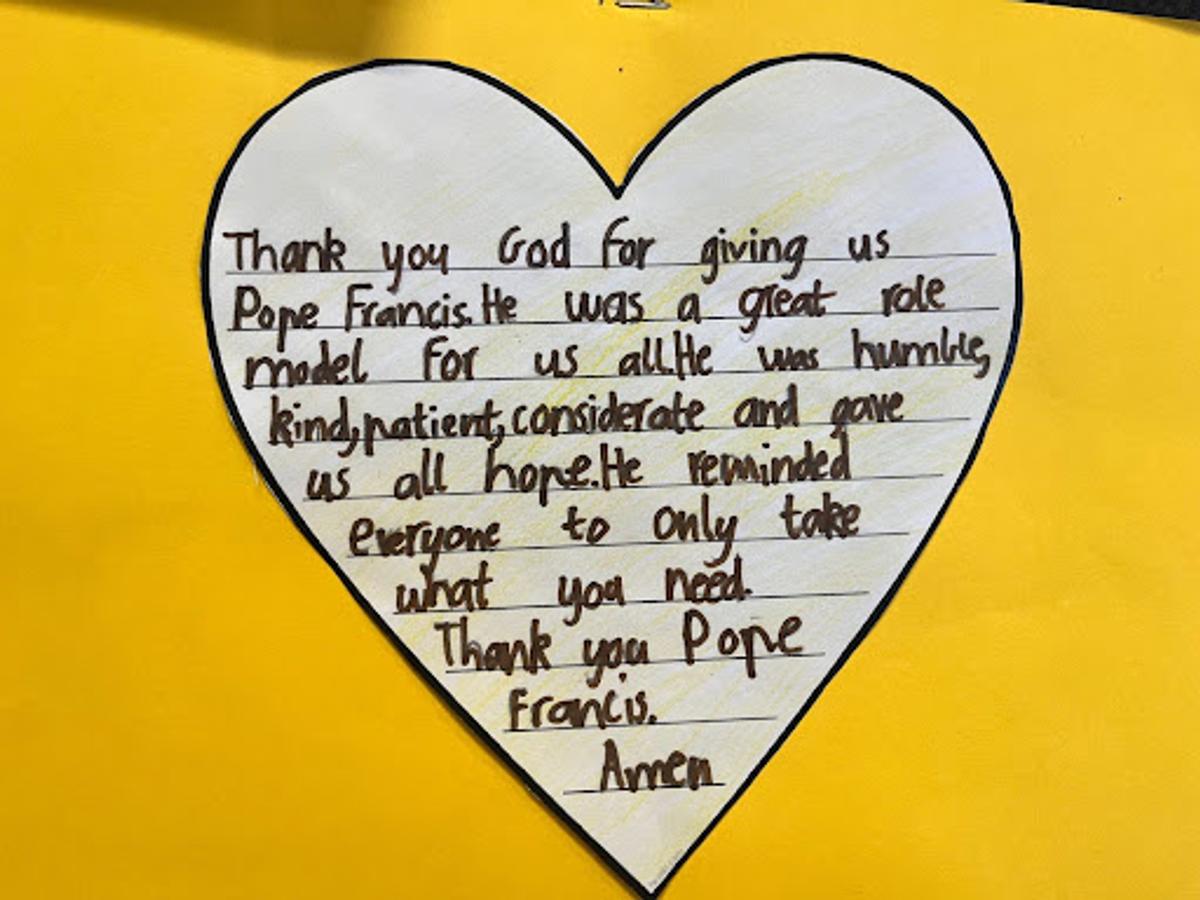 Thank you God for giving us
Pope Francis. He was a great role
model for us all. He was humble,
kind, patient, considerate and gave
us all hope. He reminded
everyone to only take
what you need.
Thank you Pope
Francis.
Amen